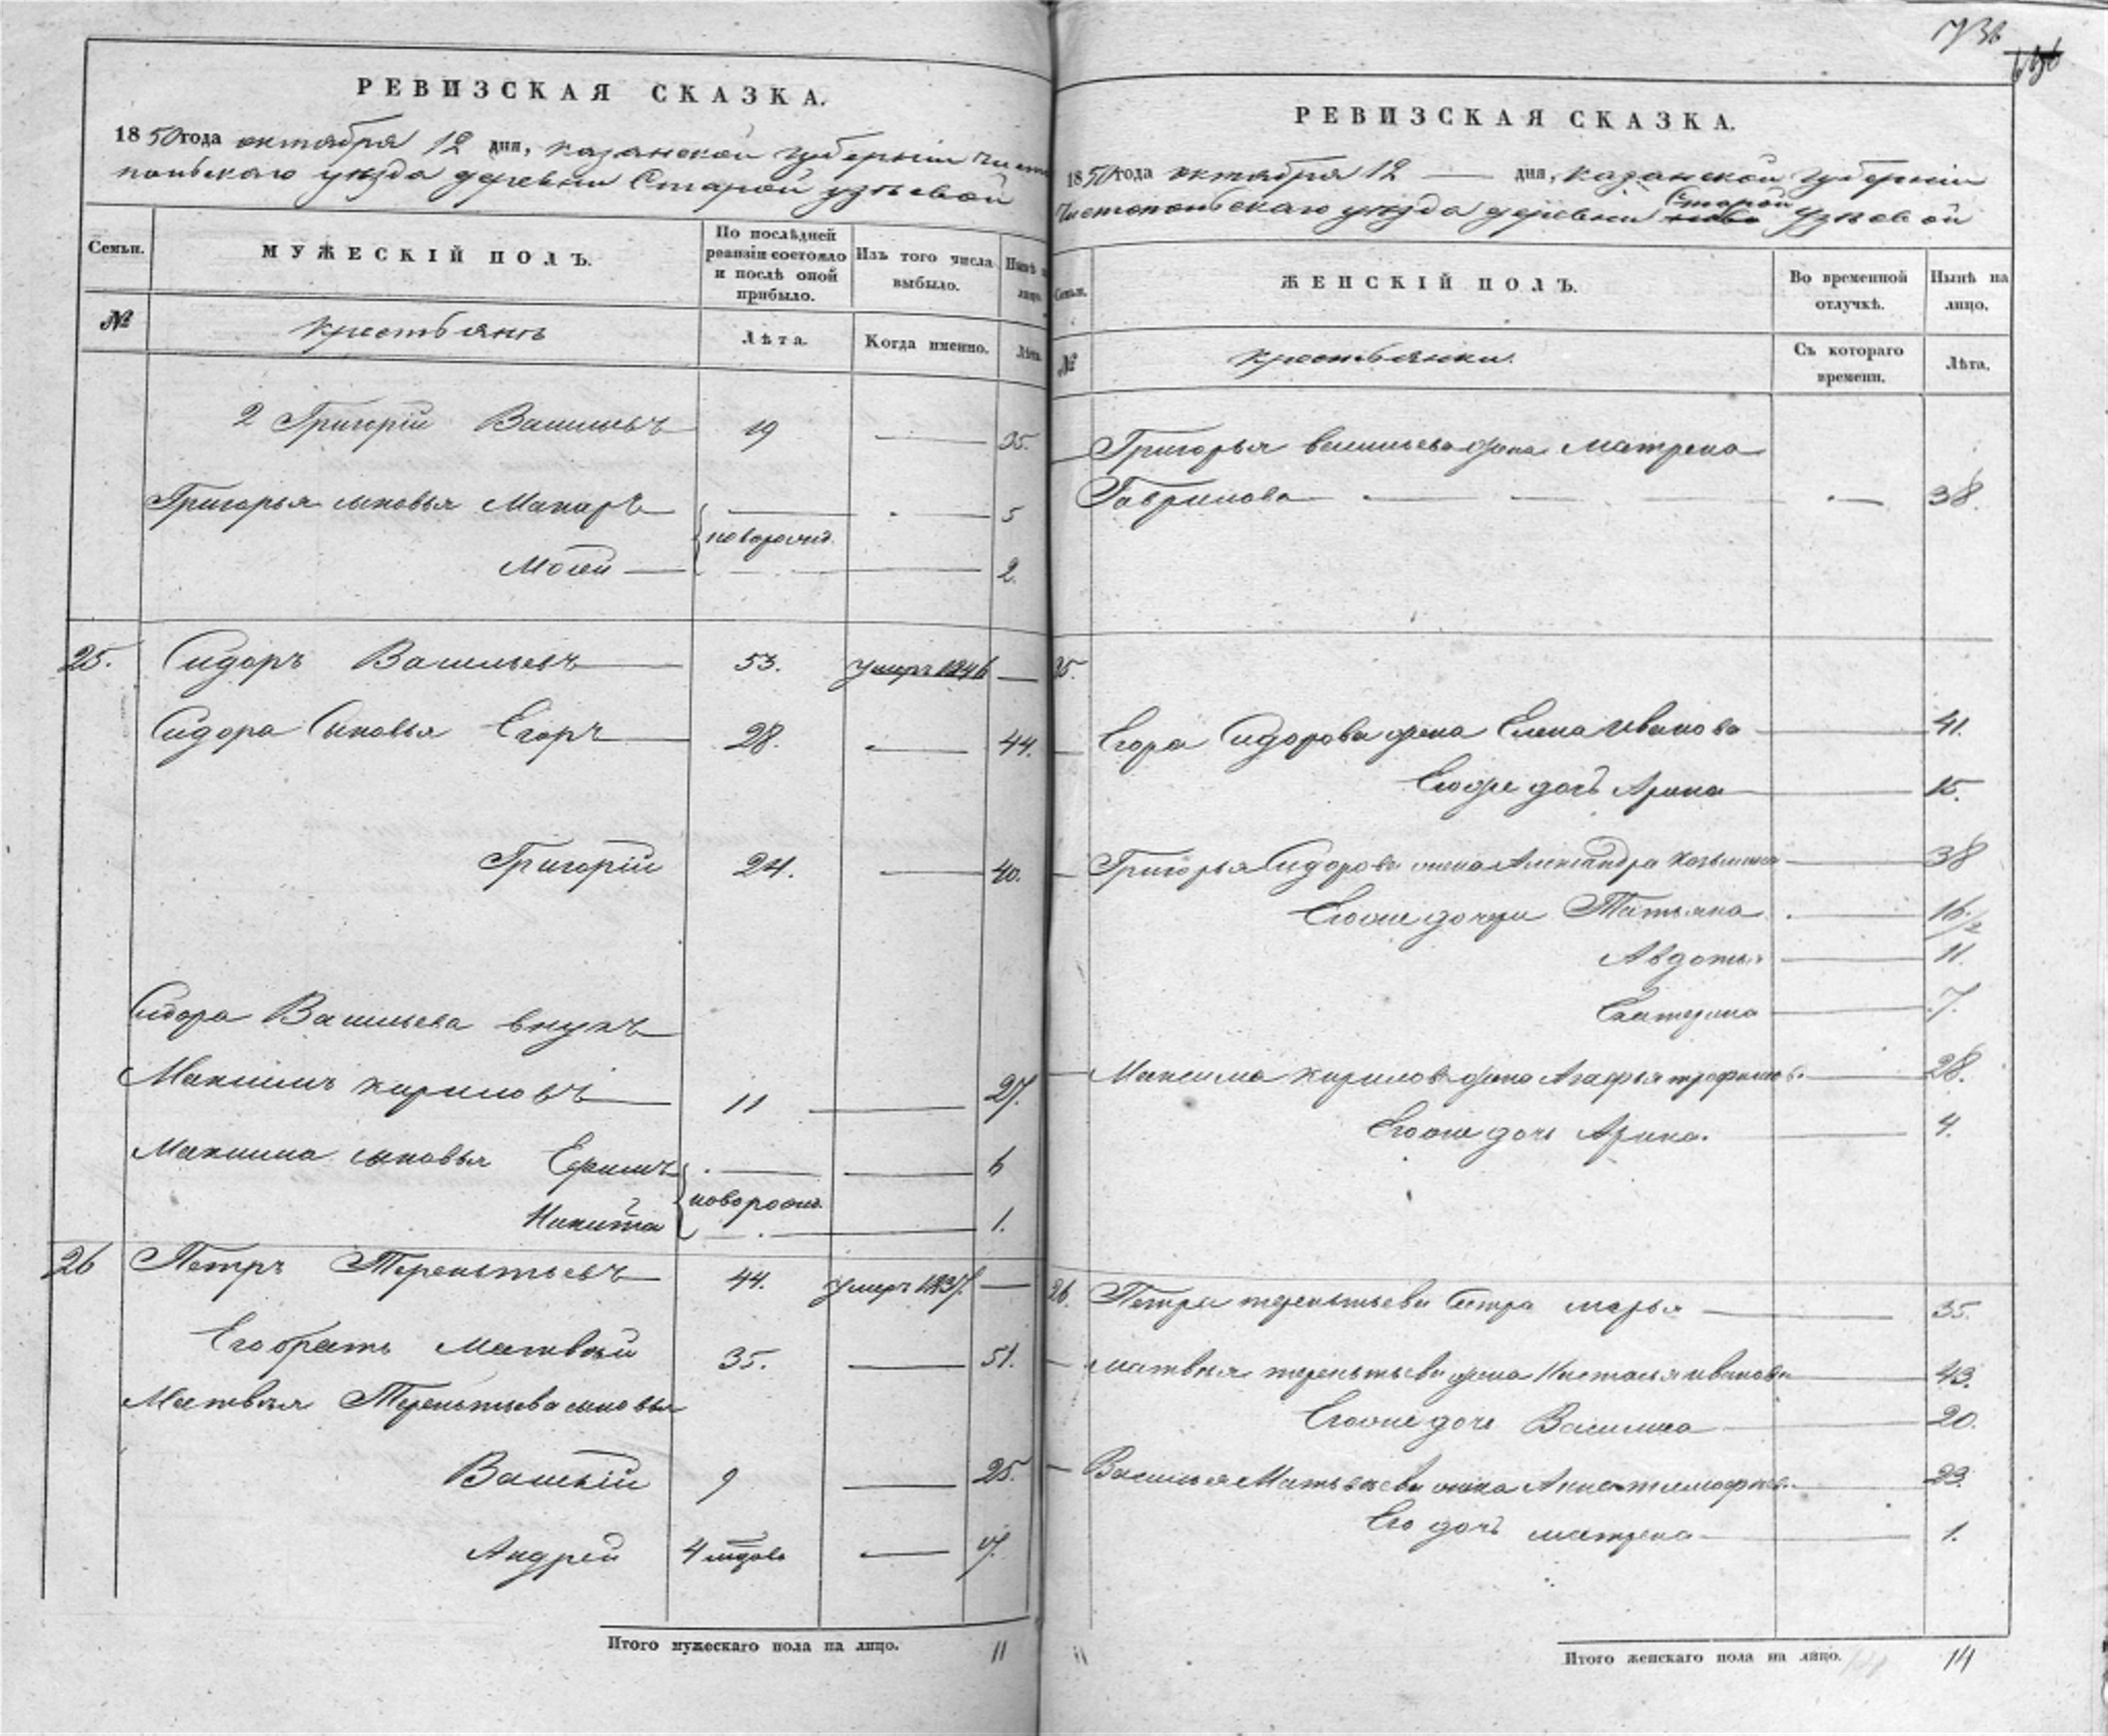 РЕВИЗСКАЯ СКАЗКА.
1850 года октября 12 дня, казанской губерніи Чисто
польскаго уѣзда деревни Старой узѣевой
Семьи.
МУЖЕСКІЙ ПОЛЪ.
По послѣдней ревизіи состояло и послѣ оной прибыло.
Изъ того числа выбыло.
Нынѣ на лицо.
№
крестьянъ
Лѣта.
Когда именно.
Лѣта.
2 Григорій Васильевъ 19 — 35.
Григорья сыновья Макаръ — 5
новорожд.
Мосей — 2.
25. Сидоръ Васильевъ 53. умеръ 1846 —
Сидора Сыновья Егоръ 28. — 44.
Григорій 24. — 40.
Сидора Васильева внукъ
Максимъ кириловъ 11 — 27.
Максима сыновья Ефимъ — 6
новорожд.
Никита — 1.
26 Петръ Терентьевъ 44. умеръ 1837. —
Его братъ Матвѣй 35. — 51.
Матвѣя Терентьева сыновья
Василій 9 — 25.
Андрей 4 —
Итого мужескаго пола на лицо. 11
РЕВИЗСКАЯ СКАЗКА.
1850 года октября 12 — дня, казанской губерніи
Чистопольскаго уѣзда деревни Старой Узѣевой
Семьи.
ЖЕНСКІЙ ПОЛЪ.
Во временной отлучкѣ.
Нынѣ на лицо.
№
крестьянки.
Съ котораго времени.
Лѣта.
Григорья васильева жена Матрена
Гаврилова — 38.
25.
Егора Сидорова жена Елена Иванова — 41.
Егоже дочь Арина — 15.
Григорья Сидорова жена Александра Козьмина — 38
Егоже дочери Татьяна — 16 1/2
Авдотья — 11.
Екатерина — 7.
Максима кирилова жена Агафья трофимова — 28.
Егоже дочь Арина. — 4.
26. Петра терентьева Сестра марья — 35.
матвѣя терентьева жена Настасья иванова — 43.
Егоже дочь Василиса — 20.
Василья Матвѣева жена Анна тимофеева — 23.
Его дочь матрена — 1.
Итого женскаго пола на лицо. 14